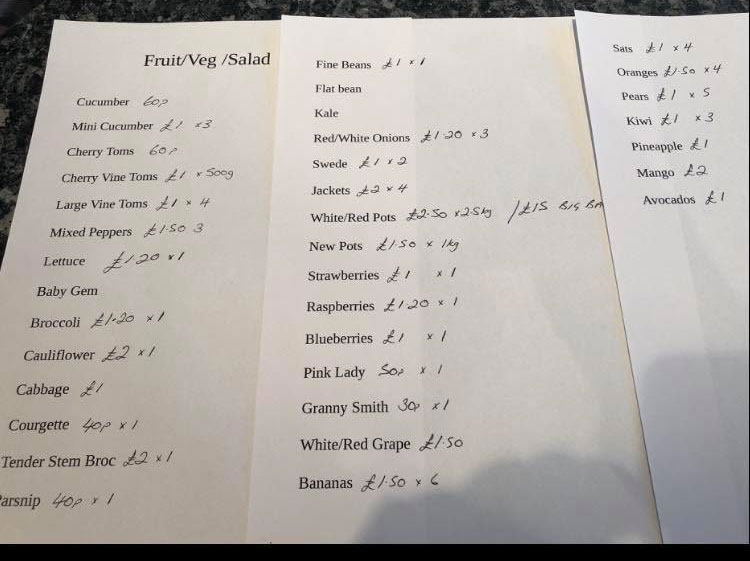 Fruit/Veg /Salad
Cucumber 60p
Mini Cucumber £1 x3
Cherry Toms 60p
Cherry Vine Toms £1 x 500g
Large Vine Toms £1 x 4
Mixed Peppers £1.50 3
Lettuce £1.20 x 1
Baby Gem
Broccoli £1.20 x 1
Cauliflower £2 x 1
Cabbage £1
Courgette 40p x 1
Tender Stem Broc £2 x 1
arsnip 40p x 1
Fine Beans £1 x 1
Flat bean
Kale
Red/White Onions £1.20 x 3
Swede £1 x 2
Jackets £2 x 4
White/Red Pots £2.50 x 2.5kg / £15 BIG BA
New Pots £1.50 x 1kg
Strawberries £1 x 1
Raspberries £1.20 x 1
Blueberries £1 x 1
Pink Lady 50p x 1
Granny Smith 30p x 1
White/Red Grape £1.50
Bananas £1.50 x 6
Sats £1 x 4
Oranges £1.50 x 4
Pears £1 x 5
Kiwi £1 x 3
Pineapple £1
Mango £2
Avocados £1